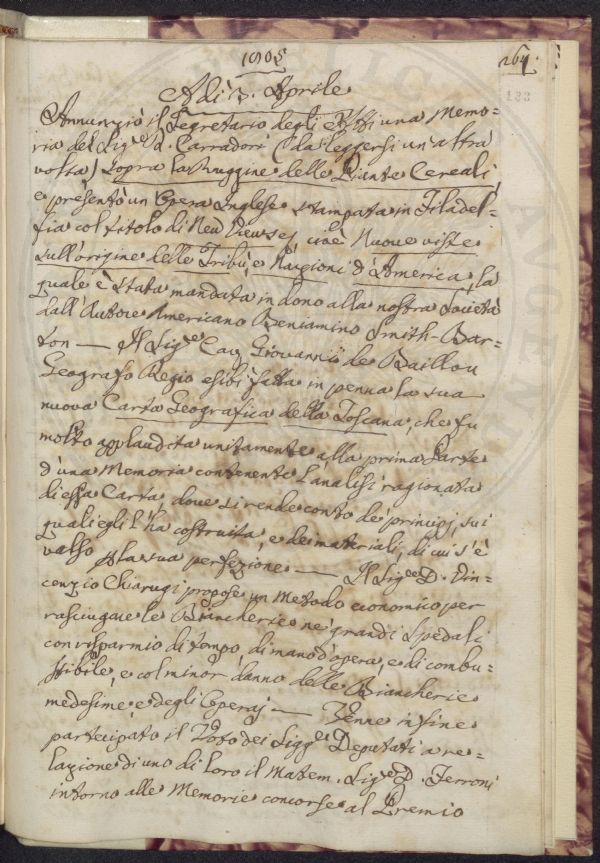 1805
264.
133
Adì 3. Aprile
Annunziò il Segretario degli Atti una Memo=
ria del Sig.re D. Carradori (da leggersi un'altra
volta) sopra la Ruggine delle Piante Cereali,
e presentò un'Opera Inglese stampata in Filadel=
fia col titolo di New Viewsej cioè Nuove viste
sull'origine delle Tribù, e Nazioni d'America, la
quale è stata mandata in dono alla nostra Società
dall'Autore Americano Beniamino Smith-Bar=
ton — Il Sig.re Cav. Giovanni de Baillou
Geografo Regio esibì fatta in penna la sua
nuova Carta Geografica della Toscana, che fu
molto applaudita unitamente alla prima Parte
d'una Memoria contenente l'analisi ragionata
di essa Carta dove si rende conto de' principj, sui
quali egli l'ha costruita, e de' materiali, di cui s'è
valso p la sua perfezione — Il Sig.re D. Vin=
cenzio Chiarugi propose un Metodo economico per
rasciugare le Biancherie ne' grandi Spedali
con risparmio di tempo, di mano d'opera, e di combu=
stibile, e col minor danno delle Biancherie
medesime, e degli Operaj — Venne in fine
partecipato il Voto dei Sigg.ri Deputati a re=
lazione di uno di loro il Matem. Sig.re D. Ferroni
intorno alle Memorie concorse al Premio